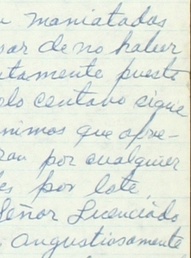 maniatados
sar de no haber
tamente puesto
olo centavo sigue
nimos que ofre-
ran por cualquier
es por lote
Señor Licenciado
angustiosamente